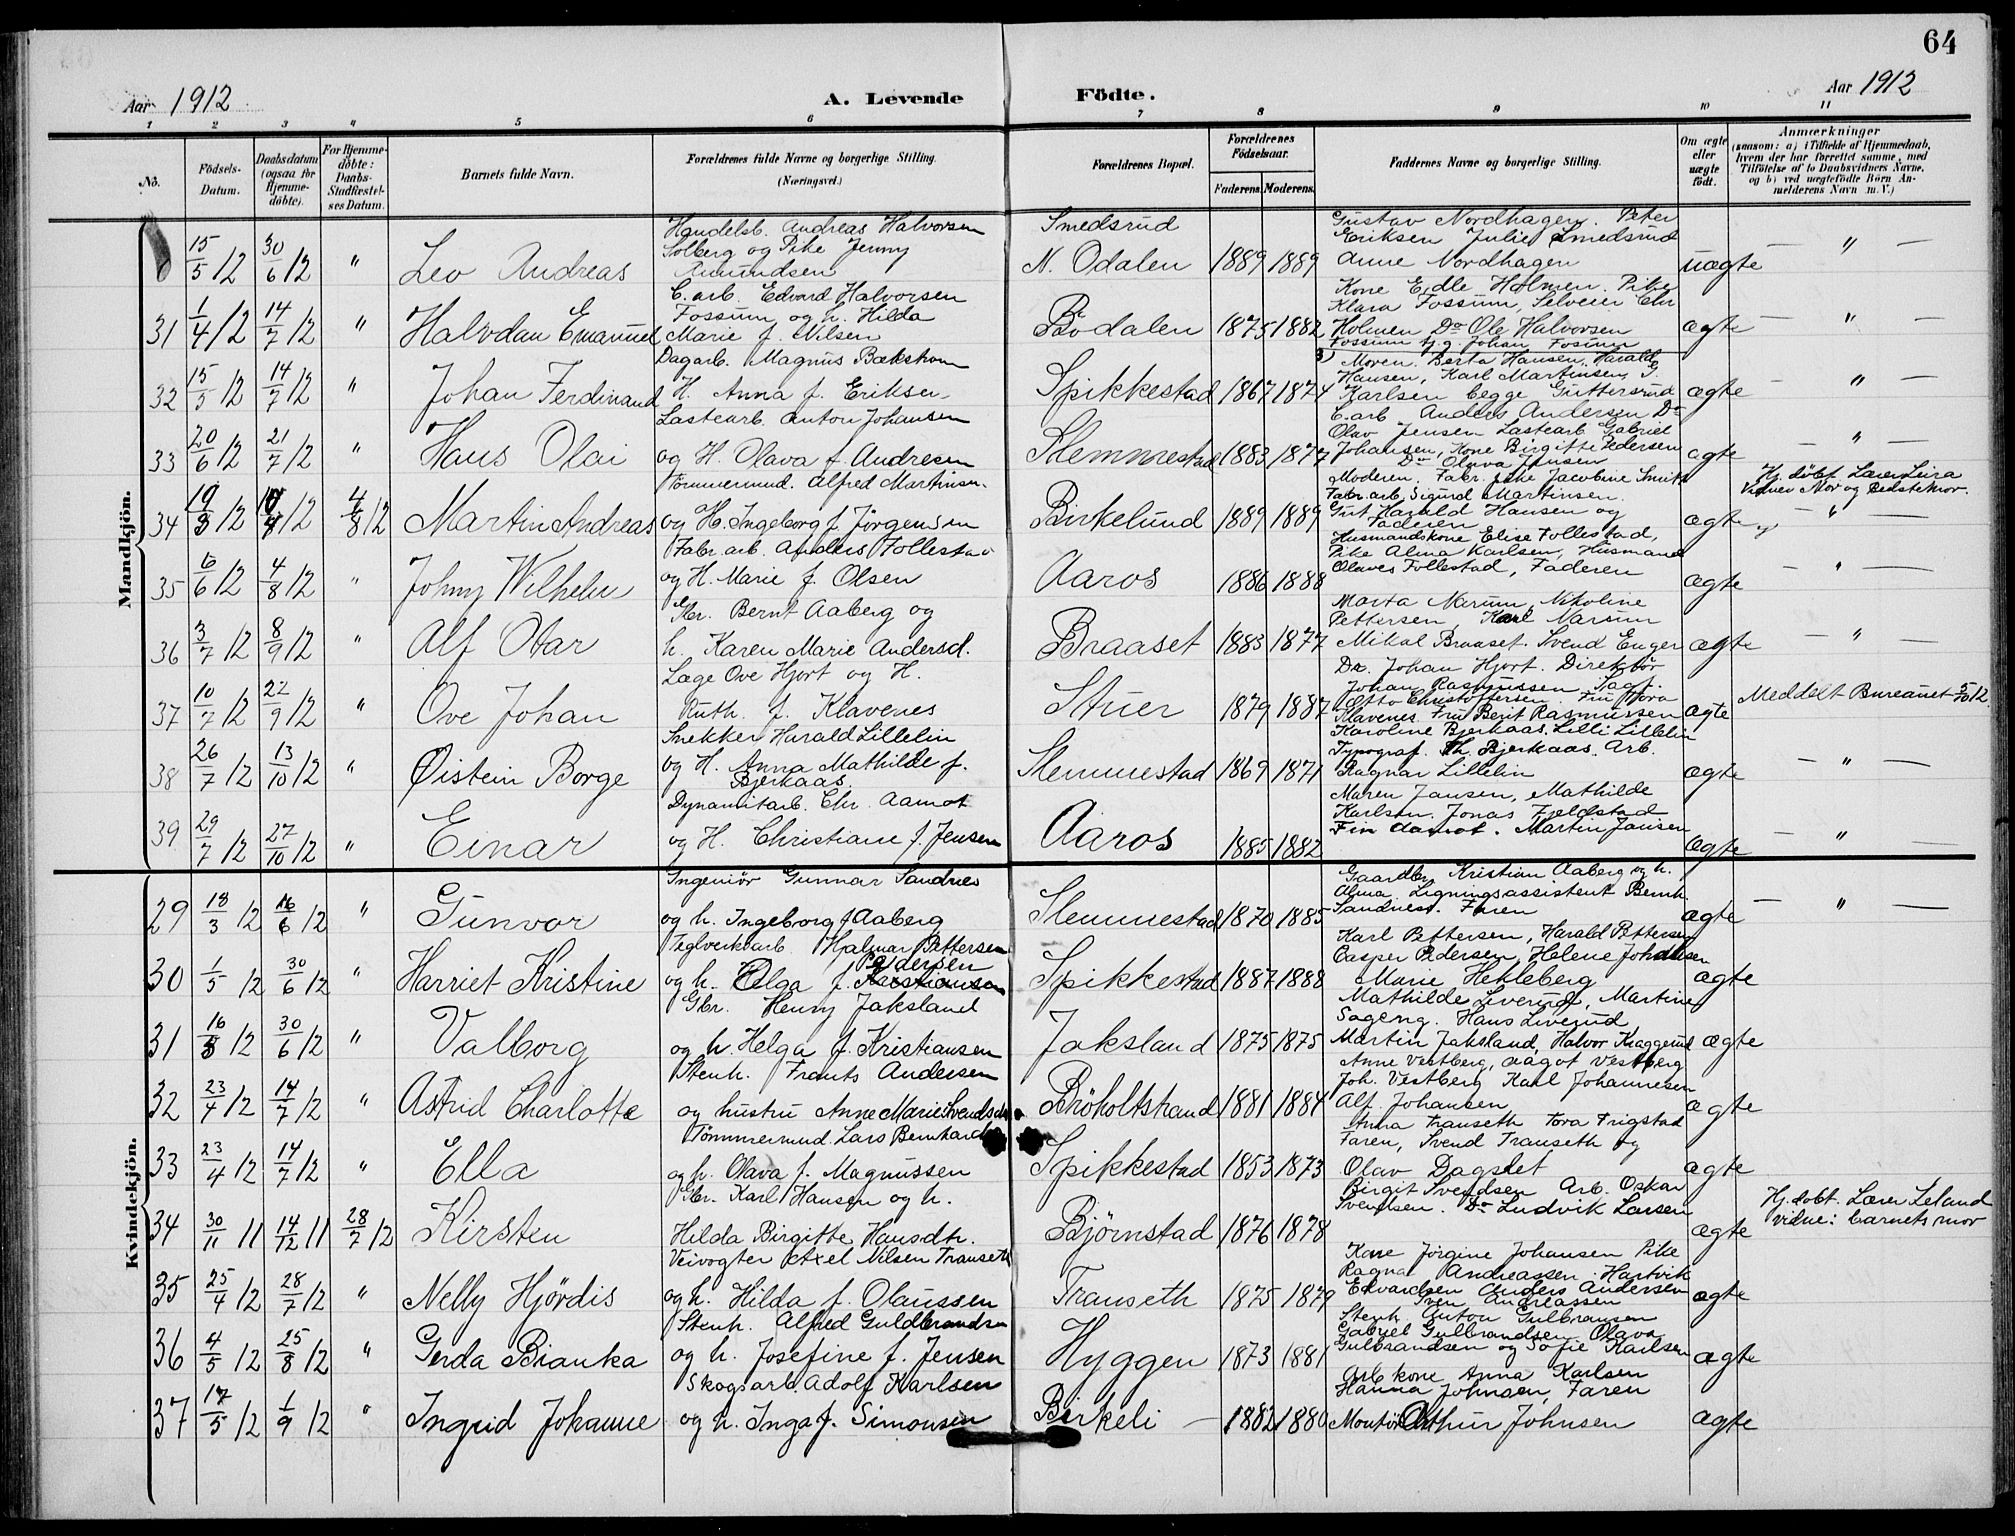 64
Aar 1912
A. Levende Födte.
Aar 1912
1 2 3 4 5 6 7 8 9 10 11
No.
Födsels-Datum.
Daabsdatum (ogsaa for Hjemme-döbte).
For Hjemme-döbte: Daabs-Stadfæstel-ses Datum.
Barnets fulde Navn.
Forældrenes fulde Navne og borgerlige Stilling. (Næringsvei.)
Forældrenes Bopæl.
Forældrenes Födselsaar.
Faderens. Moderens.
Faddernes Navne og borgerlige Stilling.
Om ægte eller uægte født.
Anmærkninger
(saasom: a) i Tilfælde af Hjemmedaab,
hvem der har forrettet samme, med
Tilföielse af to Daabsvidners Navne,
og b) ved uægtefödte Börn An-
melderens Navn m. V.)
Mandkjön.
15/5 12 30/6 12 " Leo Andreas
Handelsb. Andreas Halvorsen
Solberg og Pike Jenny
Amundsen
Smedsrud
N. Odalen 1889 1889
Gustav Nordhagen. Peter
Eriksen Julie Smedsrud
Anne Nordhagen
uægte — " —
31 1/4 12 14/7 12 " Halvdan Emanuel
C. arb. Edvard Halvorsen
Fossum og h. Hilda
Marie f. Nilsen
Bödalen 1875 1882
Kone Edle Holmen. Pike
Klara Fossum, Selveier Chr
Holmen Do Ole Halvorsen
Fossum Johan Fossum
ægte — " —
32 15/5 12 14/7 12 " Johan Ferdinand
Dagarb. Magnus Bækstrøm
H. Anna f. Eriksen
Spikkestad 1867 1874
Moren. Berta Hansen, Harald
Hansen, Karl Martinsen, G.
Karlsen begge Guttersrud
ægte — " —
33 20/6 12 21/7 12 " Hans Olai
Lastearb. Anton Johansen
og H. Olava f. Andresen
Slemmestad 1883 1877
C. arb. Anders Andersen Do
Olav Jensen Lastearb Gabriel
Johansen, Kone Birgitte Pedersen
Do Olava Jensen
ægte — " —
34 19/3 12 12 4/8 12 Martin Andreas
Tömmermnd. Alfred Martinsen
og H. Ingeborg f. Jörgensen
Birkelund 1889 1889
Moderen. Fabr. Pike Jacobine Smith
Fabr. arb. Sigurd Martinsen.
Gut Harald Hansen og
Faderen
ægte
Hj. döbt Lærer Leira
Vidner Mor og Bedstemor.
— " —
35 6/6 12 4/8 12 " Johny Wilhelm
Fabr. arb. Anders Follestad
og H. Marie f. Olsen
Aaros 1886 1888
Husmandskone Elise Follestad,
Pike Alma Karlsen, Husmand
Olaves Follestad, Faderen
ægte — " —
36 3/7 12 8/9 12 " Alf Otar
Gbr. Bernt Aaberg og
h. Karen Marie Andersd.
Braaset 1883 1877
Marta Narum, Nikoline
Pettersen, Karl Narum
Mikal Braaset. Svend Enger
ægte — " —
37 10/7 12 22/9 12 " Ove Johan
Læge Ove Hjort og H.
Ruth. f. Klavenes
Stuer 1879 1887
Dr. Johan Hjort. Direktör
Johan Rasmussen, Sagf.
Otto Christoffersen Fru Thora
Klavenes Fru Berit Rasmussen
ægte
Meddelt Bureauet 5/10 12.
38 26/7 12 13/10 12 " Øistein Borge
Snekker Harald Lillelin
og H. Anna Mathilde f.
Bjerkaas
Slemmestad 1869 1871
Karoline Bjerkaas, Lilli Lillelin
Typograf. Th. Bjerkaas. Arb.
Ragnar Lillelin
ægte — " —
39 29/7 12 27/10 12 " Einar
Dynamitarb. Chr. Aamot
og H. Christiane f. Jensen
Aaros 1885 1882
Maren Jansen, Mathilde
Karlsen. Jonas Fjeldstad
Fin Aamot. Martin Jansen
ægte — " —
Kvindekjön.
29 18/3 12 16/6 12 " Gunvor
Ingeniör Gunnar Sandnes
og h. Ingeborg f Aaberg
Slemmestad 1870 1885
Gaardbr. Kristian Aaberg og h.
Alma Ligningsassistent Bernh.
Sandnes. Faren
ægte — " —
30 1/5 12 30/6 12 " Harriet Kristine
Teglverksarb. Hjalmar Pettersen
og h. Olga f. Kristiansen
Pedersen
Spikkestad 1887 1888
Karl Pettersen, Harald Pettersen
Casper Pedersen, Helene Johansen
Marie Hekleberg
ægte
31 16/5 12 30/6 12 " Valborg
Gbr. Henry Jaksland
og h. Helga f. Kristiansen
Jaksland 1875 1875
Mathilde Liverud, Martine
Sageng. Hans Liverud
Martin Jaksland, Halvor Kraggerud
ægte
32 23/4 12 14/7 12 " Astrid Charlotte
Stenh. Frants Andersen
og hustru Anne Marie Svendsen
Bröholtstrand 1881 1884
Anne Vestberg, Aagot Vestberg
Joh. Vestberg Karl Johannesen
Alf. Johansen
ægte
33 23/4 12 14/7 12 " Ella
Tömmermnd. Lars Bernhard
og h. Olava f. Magnussen
Spikkestad 1853 1873
Anna Transeth Tora Frigstad
Faren, Svend Transeth og
Olav Dagslet
ægte
34 30/11 11 14/12 11 28/7 12 Kirsten
Gbr. Karl Hansen og h.
Hilda Birgitte Hansdtr.
Björnstad 1876 1878
Birgit Svendsen Arb. Oskar
Svendsen. Do Ludvik Larsen
ægte
Hj. dobt. Lærer Leland
vidne: barnets mor
35 25/4 12 28/7 12 " Nelly Hjördis
Veivogter Axel Nilsen Transeth
og h. Hilda f. Olaussen
Transeth 1875 1879
Kone Jörgine Johansen Pike
Ragna Andreassen. Hartvik
Edvardsen Anders Andersen
Sven Andreassen
ægte
36 4/5 12 25/8 12 " Gerda Bianka
Stenh. Alfred Guldbrandsen
og h. Josefine f. Jensen
Hyggen 1873 1881
Stenh. Anton Gulbransen
Gabriel Gulbrandsen. Olava
Gulbrandsen og Sofie Karlsen
ægte
37 17/5 12 1/9 12 " Ingrid Johanne
Skogsarb. Adolf Karlsen
og h. Inga f. Simonsen
Birkeli — 1882 1880
Arb kone Anna Karlsen
Hanna Johnsen, Faren
Montör Arthur Johnsen
ægte